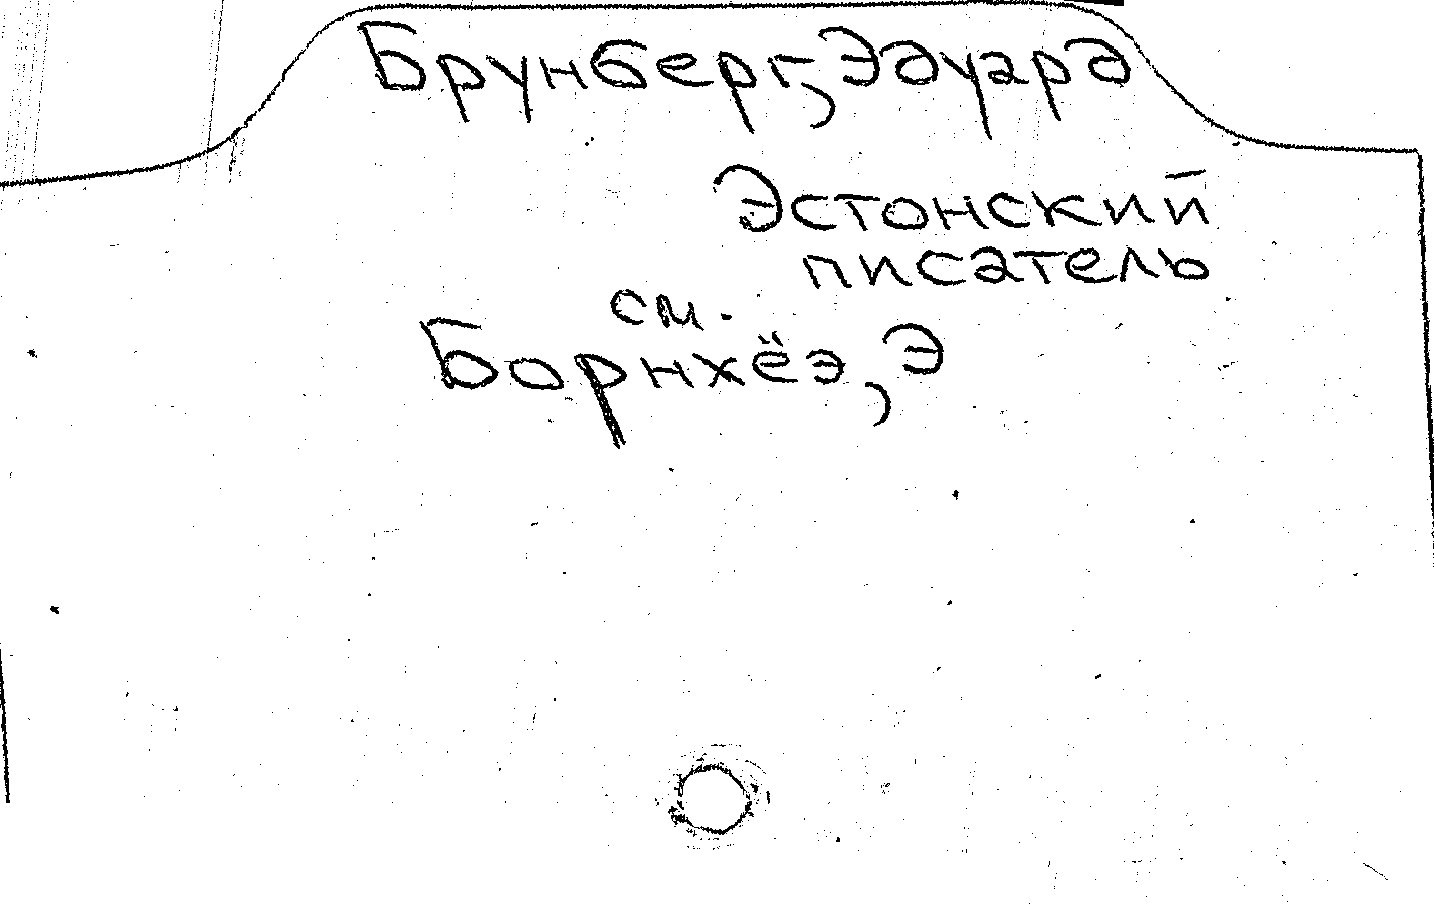 Брунберг, Эдуард
Эстонский
писатель
см.
Борнхёэ, Э